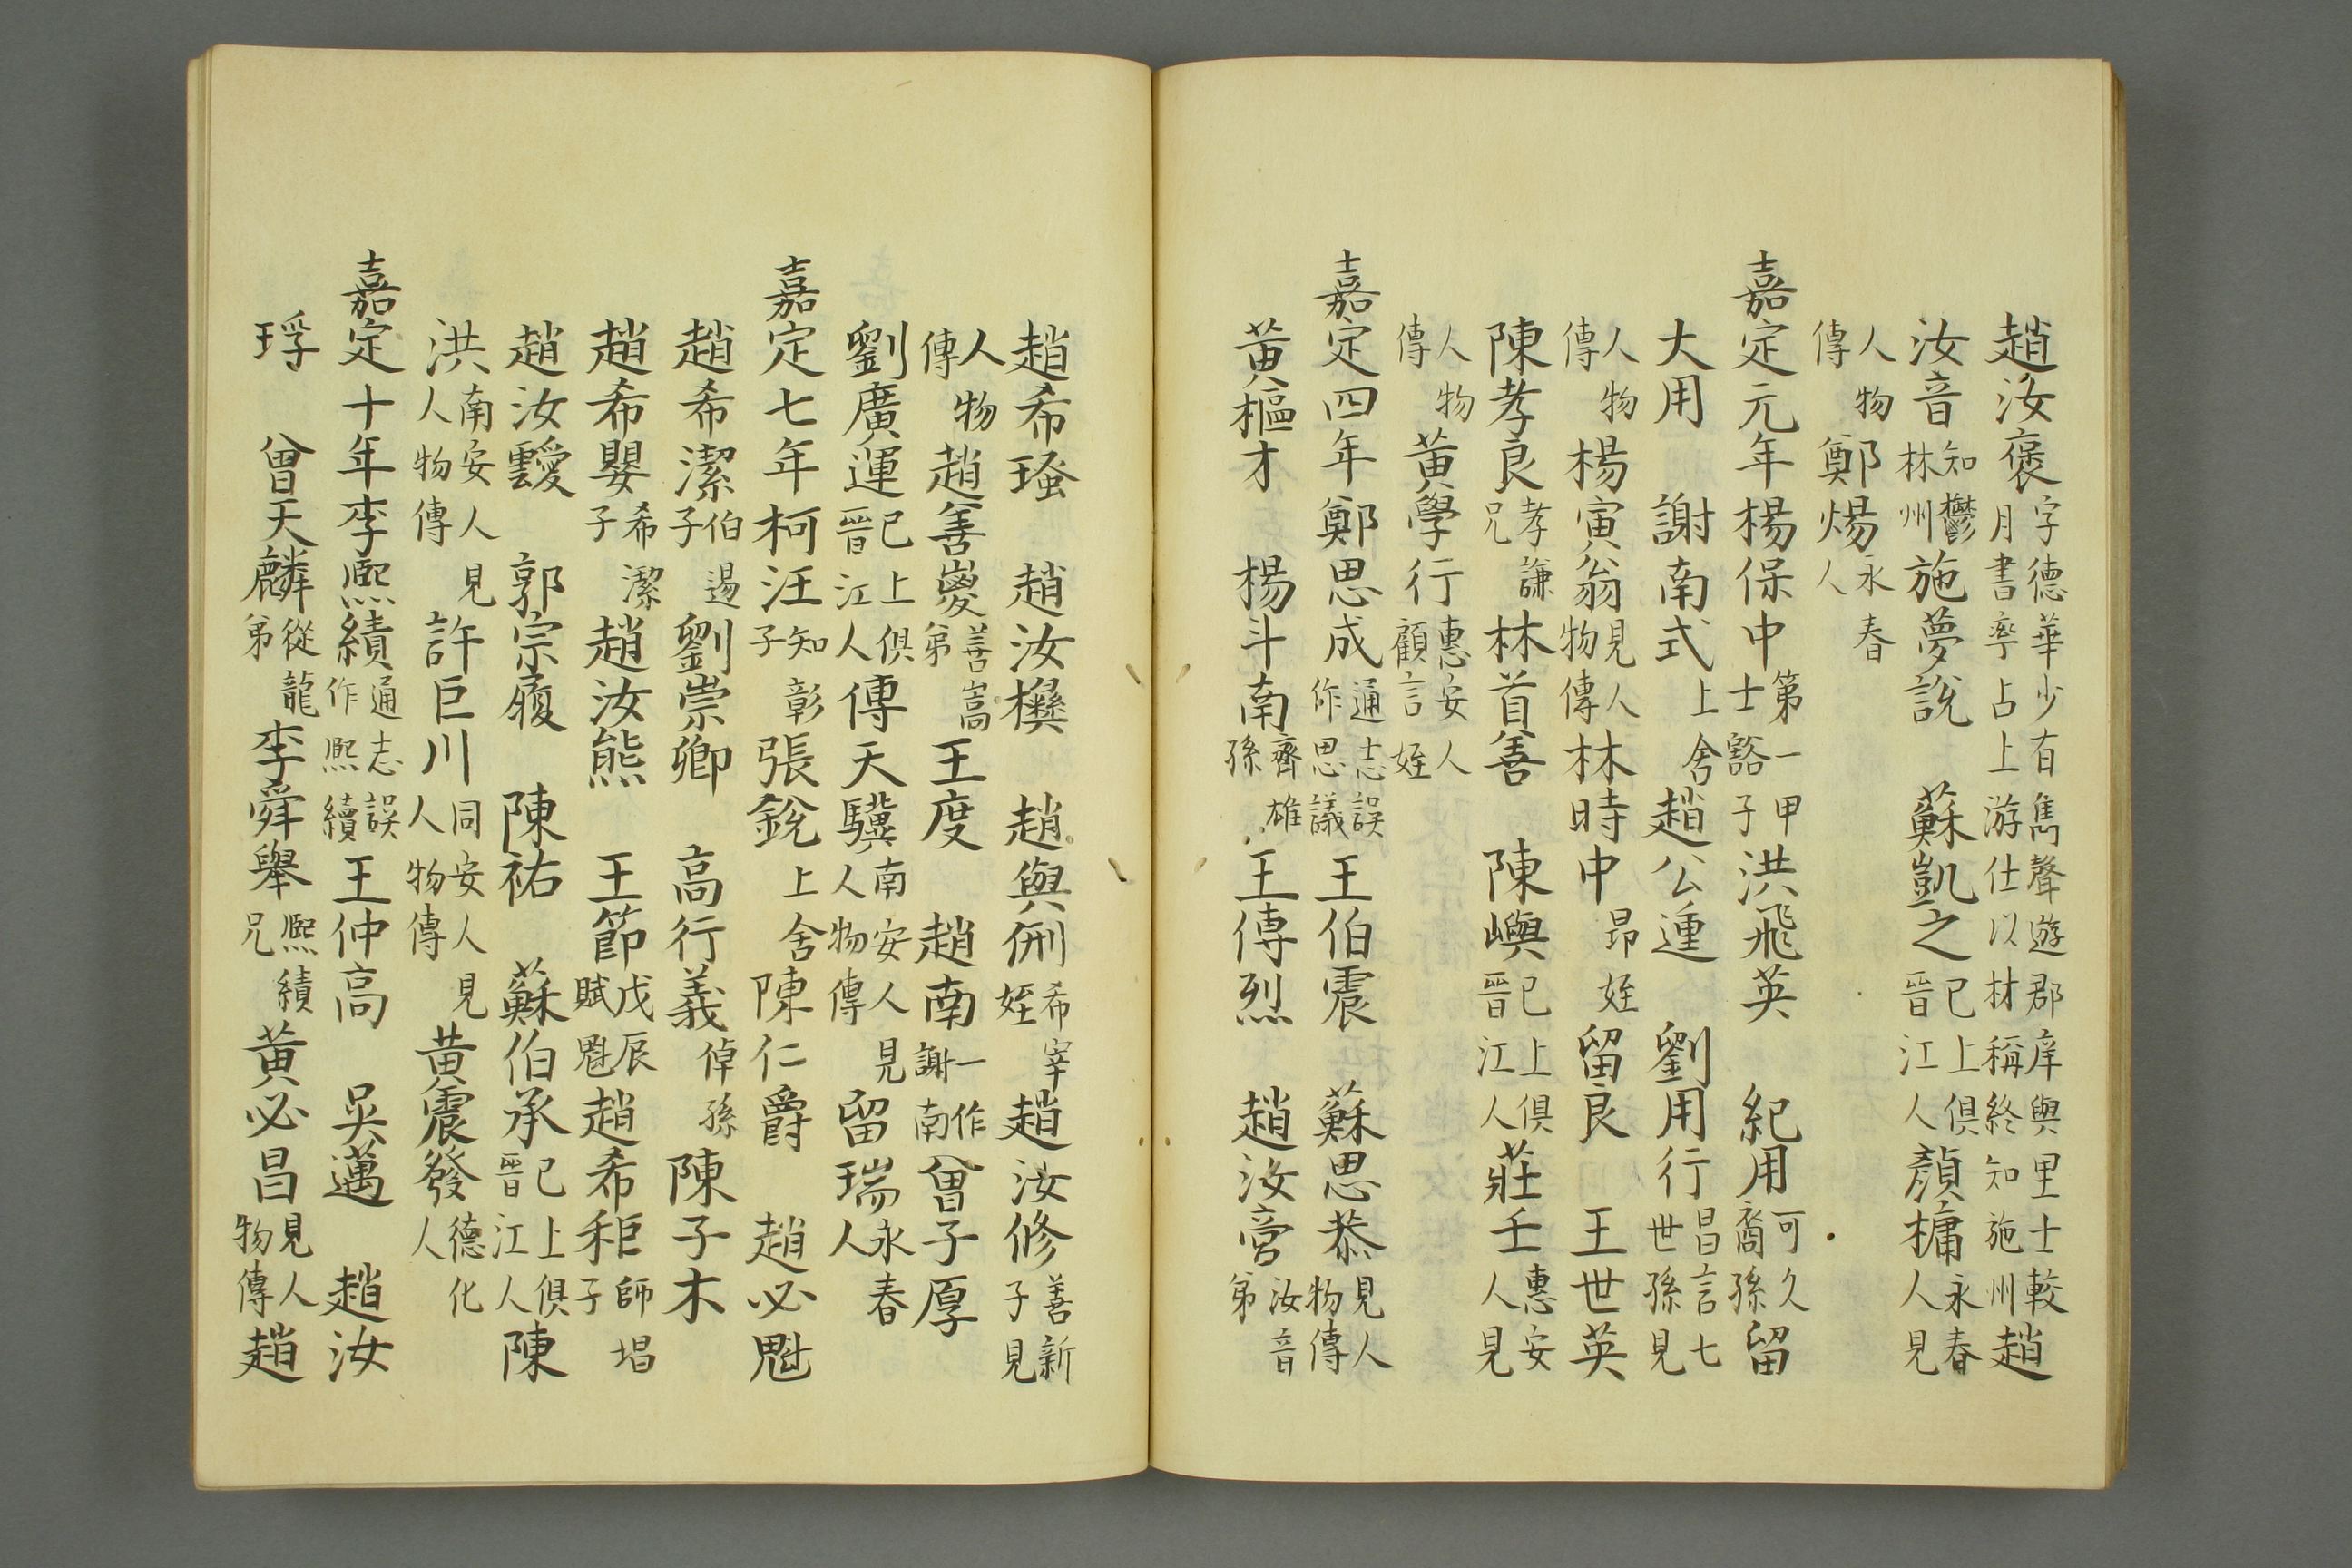 趙汝褒字德華少有雋聲遊郡庠與里士較月書率占上游仕以材稱終知施州趙
汝音知鬱林州施夢說　蘇凱之已上俱晉江人顏槦永春人見
人物傳鄭煬永春人
嘉定元年楊保中第一甲士豁子洪飛英　紀用可久裔孫留
大用　謝南式上舍趙公運　劉用行昌言七世孫見
人物傳楊寅翁見人物傳林時中昂姪留良　王世英
陳孝良孝謙兄林首善　陳嶼已上俱晉江人莊壬惠安人見
人物傳黃學行惠安人顧言姪
嘉定四年鄭思成通志誤作思議王伯震　蘇思恭見人物傳
黃樞才　楊斗南齊雄孫王傅烈　趙汝音弟
趙希瑵　趙汝櫸　趙與侀希宰姪趙汝修善新子見
人物傳趙善㚇善嵩弟王度　趙南一作謝南曾子厚
劉廣運已上俱晉江人傅天驥南安人見人物傳留瑞永春人
嘉定七年柯汪知彰子張銳上舍陳仁爵　趙必魁
趙希潔伯逷子劉崇卿　高行義倬孫陳子木
趙希嬰希潔子趙汝熊　王節戊辰賦魁趙希秬師垖子
趙汝靉　郭宗履　陳祐　蘇伯承已上俱晉江人陳
洪南安人見人物傳許巨川同安人見人物傳黃震發德化人
嘉定十年李熙績通志誤作熙續王仲高　吳邁　趙汝
琈　曾天麟從龍弟李舜舉熙績兄黃必昌見人物傳趙